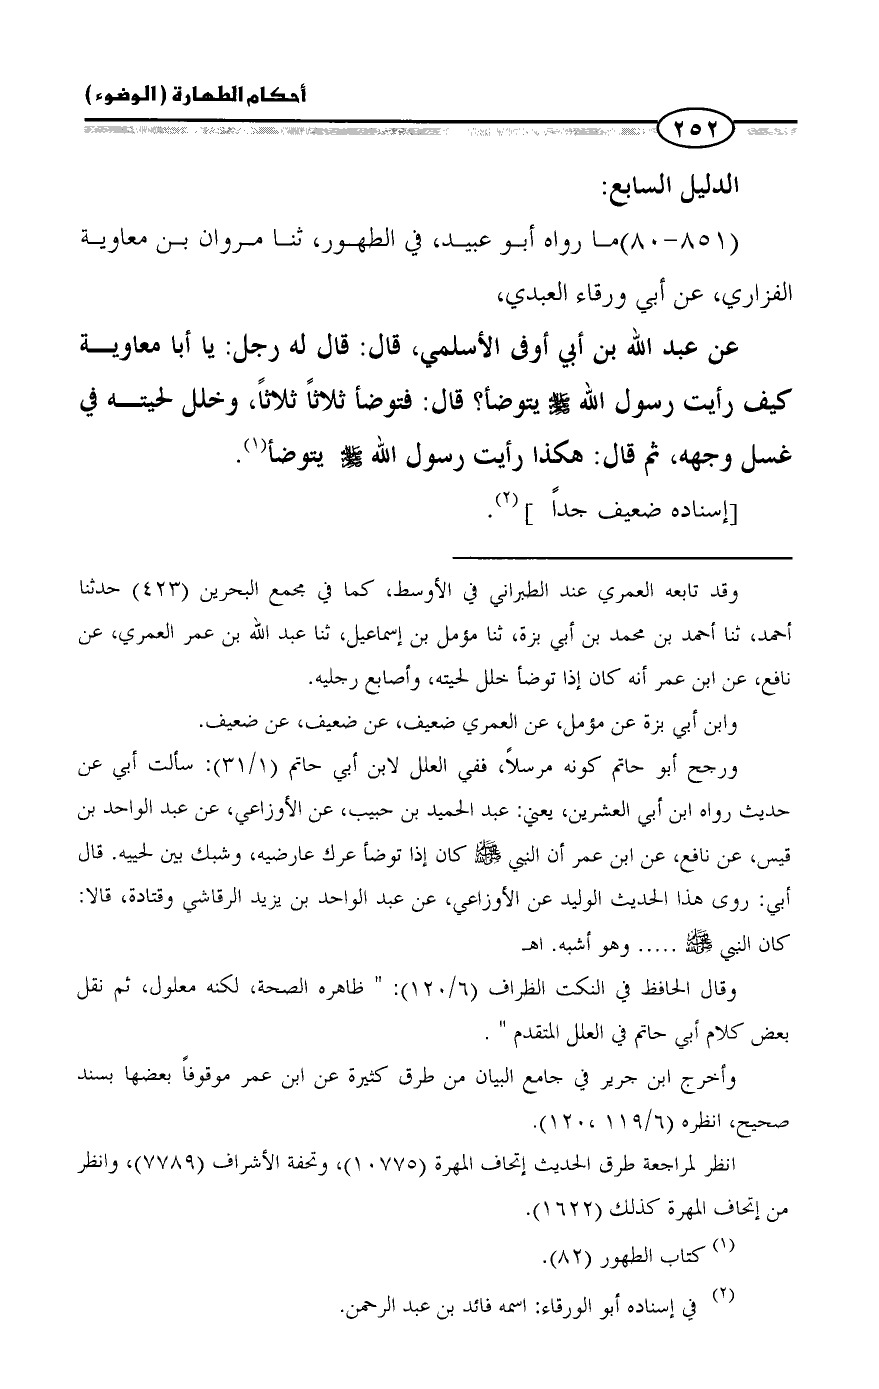 أحكام الطهارة (الوضوء)
٢٥٢
الدليل السابع:
(٨٥١-٨٠)ما رواه أبو عبيد، في الطهور، ثنا مروان بن معاوية
الفزاري، عن أبي ورقاء العبدي،
عن عبد الله بن أبي أوفى الأسلمي، قال: قال له رجل: يا أبا معاوية
كيف رأيت رسول الله ﷺ يتوضأ؟ قال: فتوضأ ثلاثاً ثلاثاً، وخلل لحيته في
غسل وجهه، ثم قال: هكذا رأيت رسول الله ﷺ يتوضأ(١).
[إسناده ضعيف جداً ](٢).
وقد تابعه العمري عند الطبراني في الأوسط، كما في مجمع البحرين (٤٢٣) حدثنا
أحمد، ثنا أحمد بن محمد بن أبي بزة، ثنا مؤمل بن إسماعيل، ثنا عبد الله بن عمر العمري، عن
نافع، عن ابن عمر أنه كان إذا توضأ خلل لحيته، وأصابع رجليه.
وابن أبي بزة عن مؤمل، عن العمري ضعيف، عن ضعيف، عن ضعيف.
ورجح أبو حاتم كونه مرسلاً، ففي العلل لابن أبي حاتم (٣١/١): سألت أبي عن
حديث رواه ابن أبي العشرين، يعني: عبد الحميد بن حبيب، عن الأوزاعي، عن عبد الواحد بن
قيس، عن نافع، عن ابن عمر أن النبي ﷺ كان إذا توضأ عرك عارضيه، وشبك بين لحييه. قال
أبي: روى هذا الحديث الوليد عن الأوزاعي، عن عبد الواحد بن يزيد الرقاشي وقتادة، قالا:
كان النبي ﷺ ..... وهو أشبه. اهـ
وقال الحافظ في النكت الظراف (١٢٠/٦): " ظاهره الصحة، لكنه معلول، ثم نقل
بعض كلام أبي حاتم في العلل المتقدم " .
وأخرج ابن جرير في جامع البيان من طرق كثيرة عن ابن عمر موقوفاً بعضها بسند
صحيح، انظره (١١٩/٦، ١٢٠).
انظر لمراجعة طرق الحديث إتحاف المهرة (١٠٧٧٥)، وتحفة الأشراف (٧٧٨٩)، وانظر
من إتحاف المهرة كذلك (١٦٢٢).
(١) كتاب الطهور (٨٢).
(٢) في إسناده أبو الورقاء: اسمه فائد بن عبد الرحمن.